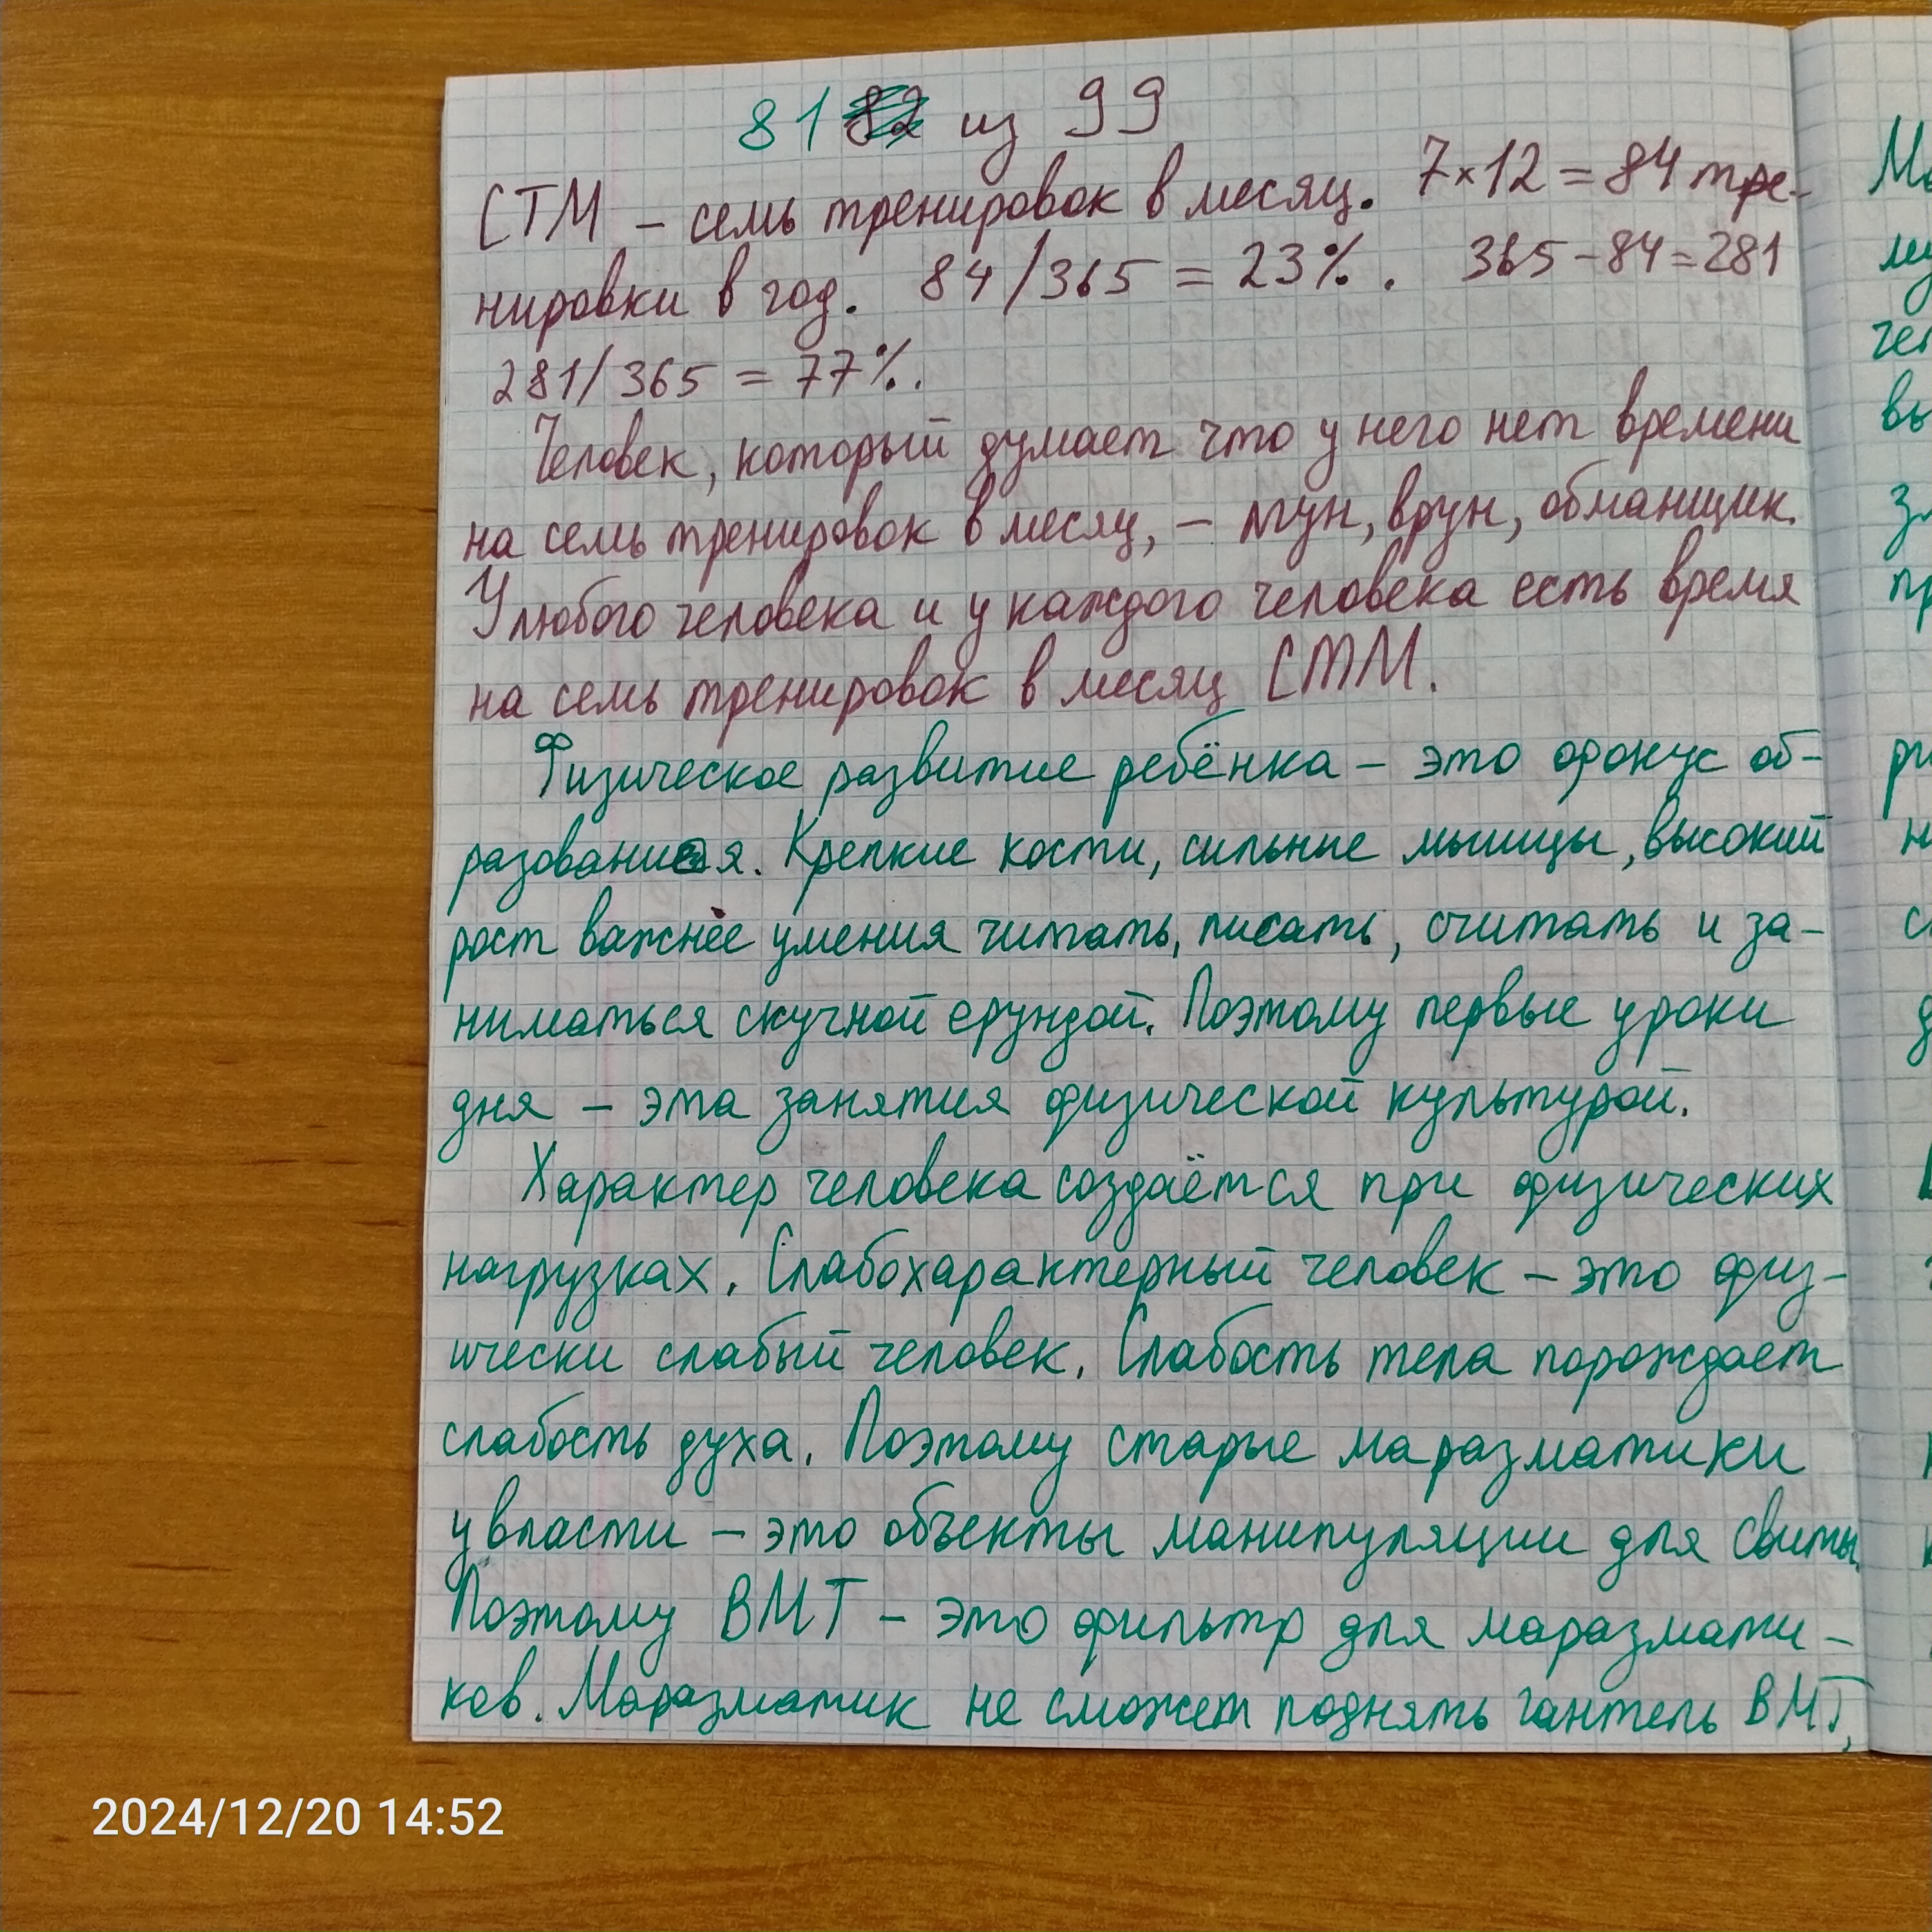 81 из 99
СТМ – семь тренировок в месяц. 7×12=84 тре-
нировки в год. 84/365 = 23%. 365-84=281
281/365 = 77%.
Человек, который думает что у него нет времени
на семь тренировок в месяц, – лгун, врун, обманщик.
У любого человека и у каждого человека есть время
на семь тренировок в месяц СТМ.
Физическое развитие ребёнка – это фокус об-
разования. Крепкие кости, сильные мышцы, высокий
рост важнее умения читать, писать, считать и за-
ниматься скучной ерундой. Поэтому первые уроки
дня – эта занятия физической культурой.
Характер человека создаётся при физических
нагрузках. Слабохарактерный человек – это физ-
ически слабый человек. Слабость тела порождает
слабость духа. Поэтому старые маразматики
у власти – это объекты манипуляции для свиты.
Поэтому ВМТ – это фильтр для маразмати-
ков. Маразматик не сможет поднять гантель ВМТ,
2024/12/20 14:52